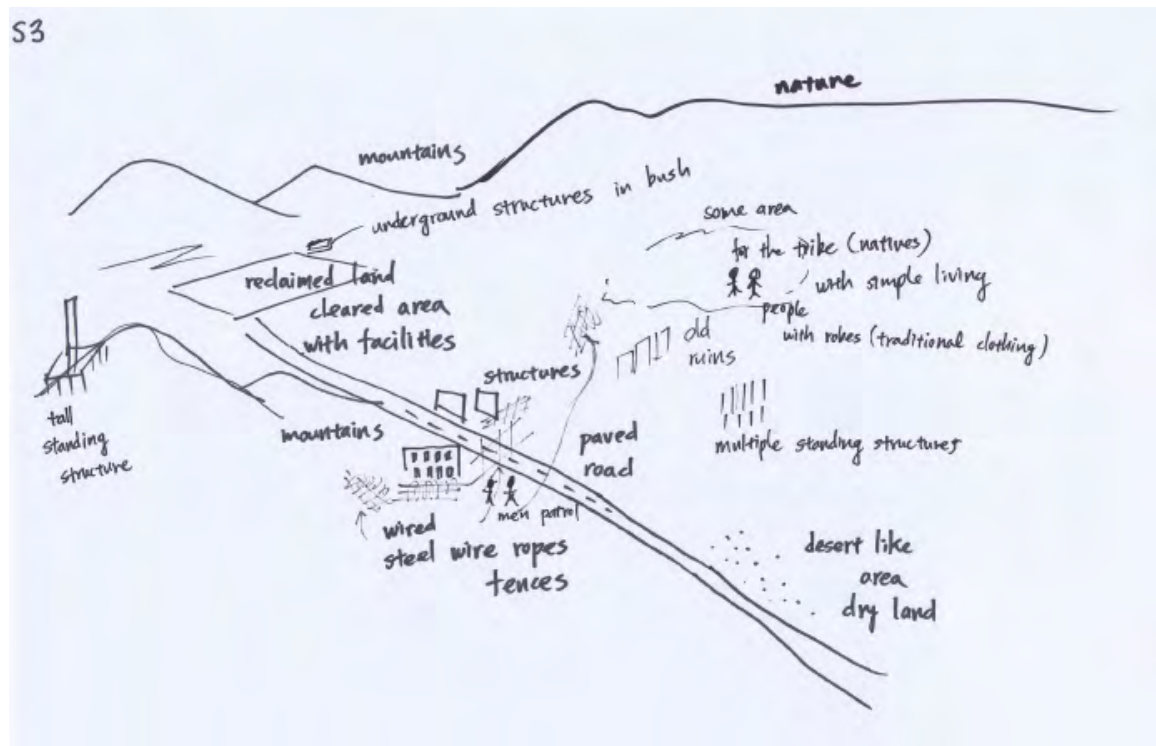 S3
nature
mountains
underground structures in bush
some area
for the tribe (natives)
with simple living
people
with robes (traditional clothing)
reclaimed land
cleared area
with facilities
old
ruins
structures
tall
standing
structure
mountains
paved
road
multiple standing structures
men patrol
wired
steel wire ropes
tences
desert like
area
dry land